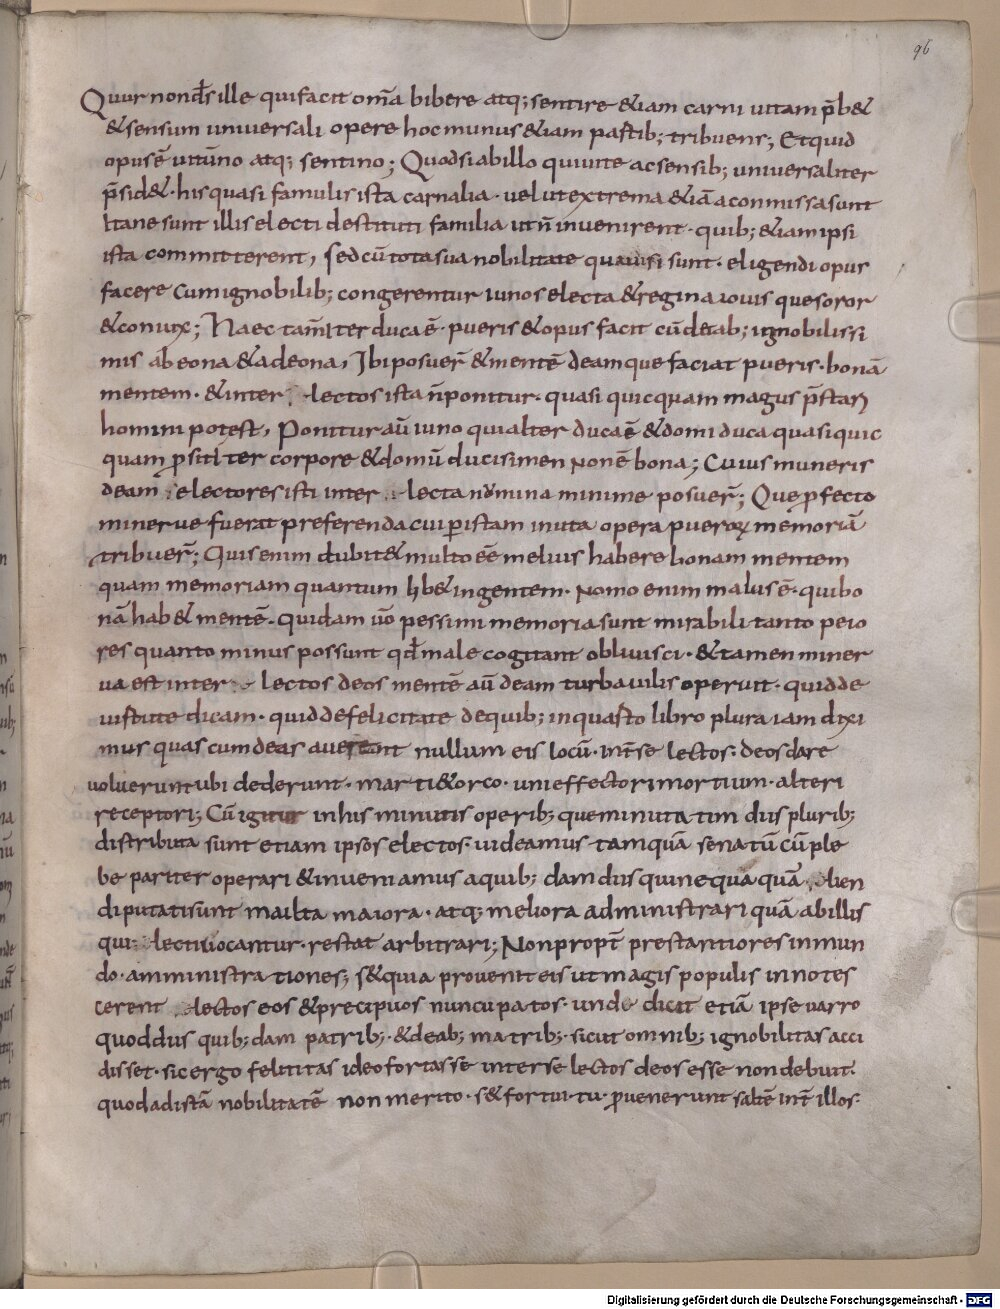 96
Quur non d̄s ille qui facit om̄a bibere atq; sentire &iam carni uitam p̄b&
& sensum uniuersali opere hoc munus &iam pastib; tribuens; Et quid
opus ē uitūno atq; sentino; Quodsi ab illo qui uite ac sensib; uniuersaliter
p̄sid&· his quasi famulis ista carnalia· uelut extrema & iā a commissa sunt
Itane sunt illis electi destituti familia ut n̄ inuenirent· quib; &iam ipsi
ista committerent, sed cū tota sua nobilitate qua uisi sunt· eligendi opus
facere cum ignobilib; congerentur iunos electa & regina iouis que soror
& coniux; Haec tam̄ Iter duca ē· pueris & opus facit cū deab; ignobilissi
mis abeona & adeona, Ibi posuer̄ & mentē deam que faciat pueris· bonā
mentem· & inter lectos ista n̄ ponitur· quasi quicquam magus p̄stari
homini potest, Ponitur aū iuno qui alter duca ē & domi duca quasi quic
quam ꝑ sit Iter corpore & domū duci si men non ē bona; Cuius muneris
deam̄ electores isti inter lecta numina minime posuer̄; Que ꝓfecto
minerue fuerat preferenda cui ꝑ istam inuta opera pueroꝝ memoriā
tribuer̄; Quis enim dubit& multo eē melius habere bonam mentem
quam memoriam quantum lib& ingentem· Nomo enim malus ē· qui bo
nā hab& mentē· quidam ūo pessimi memoria sunt mirabili tanto peio
res quanto minus possunt qd̄ male cogitant obliuisci· & tamen miner
ua est inter lectos deos mentē aū deam turba uilis operuit· quid de
uistute dicam· quid de felicitate de quib; in quasto libro plura iam dixi
mus quas cum deas auertant nullum eis locū· int̄ se lectos· deos dare
uoluerunt ubi dederunt· marti & orco· uni effectori mortium· alteri
receptori; Cū igitur in his minutis operib; que minutatim diis plurib;
distributa sunt etiam ipsos electos· uideamus tamquā senatū cū ple
be pariter operari & inueniamus a quib; dam diis qui nequaquā lien
di putati sunt mailta maiora· atq; meliora administrari quā ab illis
qui lecti uocantur· restat arbitrari; Non propt̄ prestantiores in mun
do· amministrationes; s& quia prouenit eis ut magis populis innotes
cerent lectos eos & precipuos nuncupatos· unde dicit etiā ipse uarro
quod diis quib; dam patrib;· & deab; matrib;· sicut omnib; ignobilitas acci
disset· sic ergo felititas ideo fortasse inter se lectos deos esse non debuit·
quod ad istā nobilitatē non merito· s& fortui·tu· ꝓuenerunt saltē int̄ illos·
Digitalisierung gefördert durch die Deutsche Forschungsgemeinschaft - DFG